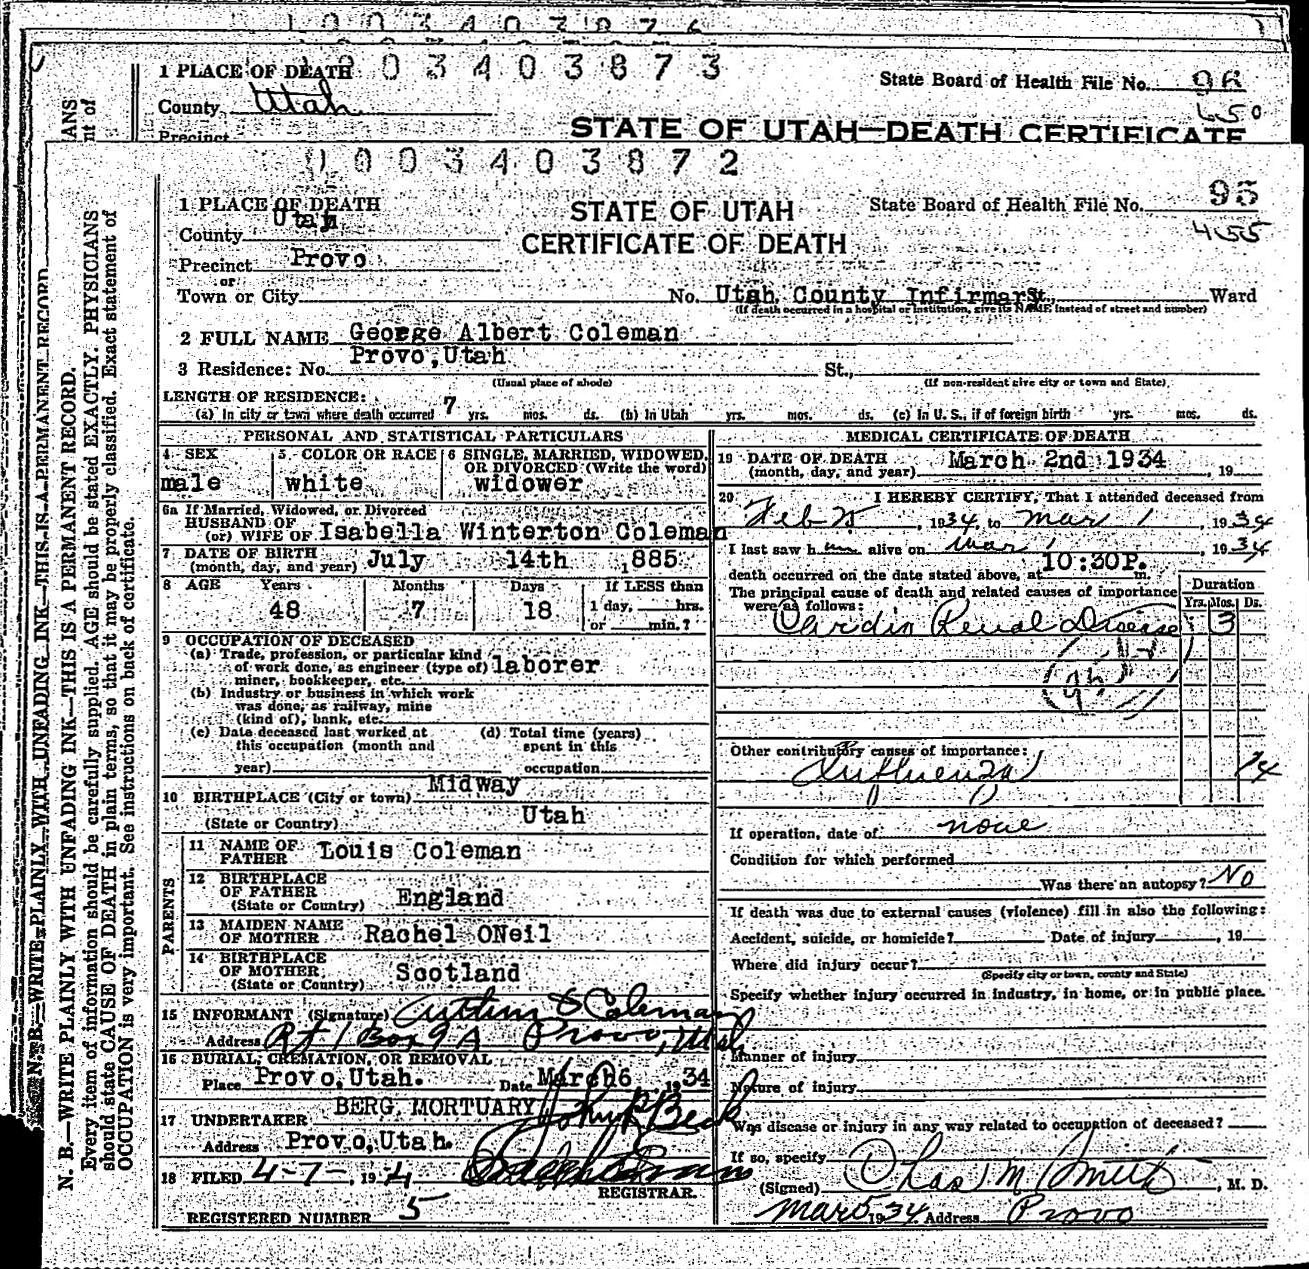 1 0 0 3 4 0 3 8 7 6
0 0 3 4 0 3 8 7 3
1 PLACE OF DEATH
State Board of Health File No. 96
County Utah
650
Precinct
STATE OF UTAH—DEATH CERTIFICATE
0 0 0 3 4 0 3 8 7 2
1 PLACE OF DEATH
STATE OF UTAH
State Board of Health File No. 95
County Utah
CERTIFICATE OF DEATH
455
Precinct Provo
or
Town or City No. Utah County Infirmary St., Ward
(If death occurred in a hospital or institution, give its NAME instead of street and number)
2 FULL NAME George Albert Coleman
3 Residence: No. Provo, Utah St.,
(Usual place of abode) (If non-resident give city or town and State)
LENGTH OF RESIDENCE:
(a) In city or town where death occurred 7 yrs. mos. ds. (b) In Utah yrs. mos. ds. (c) In U. S., if of foreign birth yrs. mos. ds.
PERSONAL AND STATISTICAL PARTICULARS
4 SEX male
5 COLOR OR RACE white
6 SINGLE, MARRIED, WIDOWED, OR DIVORCED (Write the word) widower
6a If Married, Widowed, or Divorced
HUSBAND OF
(or) WIFE OF Isabella Winterton Coleman
7 DATE OF BIRTH
(month, day, and year) July 14th 1885
8 AGE Years Months Days If LESS than
48 7 18 1 day, hrs.
or min.?
9 OCCUPATION OF DECEASED
(a) Trade, profession, or particular kind
of work done, as engineer (type of) laborer
miner, bookkeeper, etc.
(b) Industry or business in which work
was done, as railway, mine
(kind of), bank, etc.
(c) Date deceased last worked at
this occupation (month and
year)
(d) Total time (years)
spent in this
occupation
10 BIRTHPLACE (City or town) Midway
(State or Country) Utah
PARENTS
11 NAME OF
FATHER Louis Coleman
12 BIRTHPLACE
OF FATHER
(State or Country) England
13 MAIDEN NAME
OF MOTHER Rachel ONeil
14 BIRTHPLACE
OF MOTHER
(State or Country) Scotland
15 INFORMANT (Signature) Coleman
Address Rt 1 Box 9A Provo, Utah
16 BURIAL, CREMATION, OR REMOVAL
Place Provo, Utah. Date March 6, 1934
17 UNDERTAKER BERG MORTUARY John R Beck
Address Provo, Utah.
18 FILED 4-7-, 1934
REGISTRAR.
REGISTERED NUMBER 5
MEDICAL CERTIFICATE OF DEATH
19 DATE OF DEATH
(month, day, and year) March 2nd 1934, 19
20 I HEREBY CERTIFY, That I attended deceased from
Feb 25, 1934, to Mar 1, 1934
I last saw him alive on Mar 1, 1934
death occurred on the date stated above, at 10:30P. m.
The principal cause of death and related causes of importance
were as follows:
Duration
Yrs. Mos. Ds.
Cardio Renal Disease 3
Other contributory causes of importance:
Influenza 14
If operation, date of none
Condition for which performed
Was there an autopsy? No
If death was due to external causes (violence) fill in also the following:
Accident, suicide, or homicide? Date of injury , 19
Where did injury occur?
(Specify city or town, county and State)
Specify whether injury occurred in industry, in home, or in public place.
Manner of injury
Nature of injury
Was disease or injury in any way related to occupation of deceased?
If so, specify
(Signed) Chas M Smith, M. D.
Mar 5 1934 Address Provo
N. B.—WRITE PLAINLY WITH UNFADING INK—THIS IS A PERMANENT RECORD
N. B.—WRITE PLAINLY WITH UNFADING INK—THIS IS A PERMANENT RECORD.
Every item of information should be carefully supplied. AGE should be stated EXACTLY. PHYSICIANS
should state CAUSE OF DEATH in plain terms, so that it may be properly classified. Exact statement of
OCCUPATION is very important. See instructions on back of certificate.